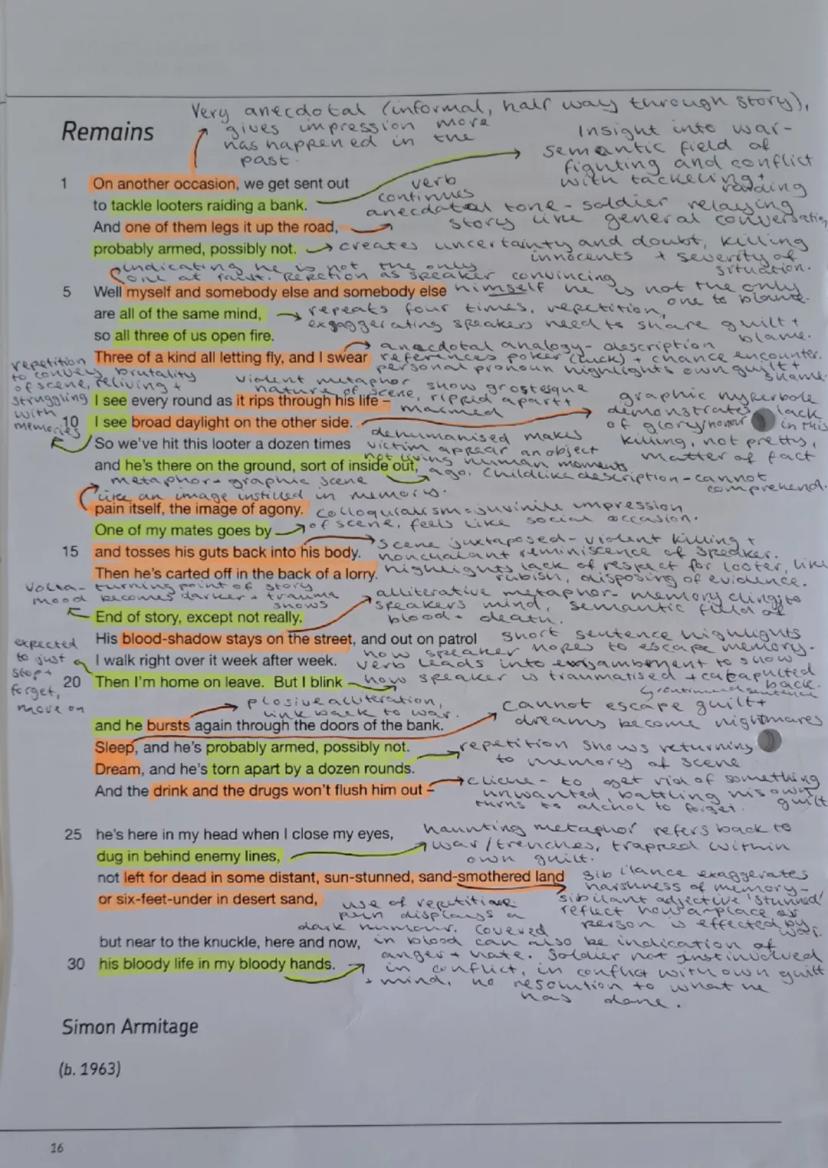 Very anecdotal (informal, half way through story),
Remains
gives impression more
has happened in the
past.
Insight into war -
semantic field of
fighting and conflict
with tackeling +
raiding
1 On another occasion, we get sent out
verb
continues
to tackle looters raiding a bank.
anecdotal tone - soldier relaying
And one of them legs it up the road,
story like general conversation
probably armed, possibly not.
creates uncertainty and doubt, killing
innocents + severity of
situation.
indicating he is not the only
one at fault. Repetion as speaker convincing
5 Well myself and somebody else and somebody else
himself he is not the only
one to blame.
are all of the same mind,
repeats four times, repetition,
exgaggerating speakers need to share guilt +
blame.
so all three of us open fire.
anecdotal analogy - description
Three of a kind all letting fly, and I swear
references poker (luck) + chance encounter.
personal pronoun highlights own guilt +
shame.
repetition
to convey brutality
of scene, reliving +
struggling
with
memories
violent metaphor show grotesque
nature of scene, ripped apart +
maimed
I see every round as it rips through his life –
graphic hyperbole
demonstrates lack
of glory/honour in this
killing, not pretty,
matter of fact
10 I see broad daylight on the other side.
dehumanised makes
So we've hit this looter a dozen times
victim appear an object
not living human moments
and he's there on the ground, sort of inside out,
ago. Childlike description - cannot
comprehend.
metaphor - graphic scene
like an image instilled in memory.
pain itself, the image of agony.
colloquialism - juvinile impression
One of my mates goes by
of scene, feels like social occasion.
15 and tosses his guts back into his body.
scene juxtaposed - violent killing +
nonchalant reminiscence of speaker.
Then he's carted off in the back of a lorry.
highlights lack of respect for looter, like
rubish, disposing of evidence.
Volta - turning point of story
mood becomes darker + trauma
shows
alliterative metaphor - memory clings to
speakers mind, semantic field of
blood + death.
End of story, except not really.
His blood-shadow stays on the street, and out on patrol
short sentence highlights
how speaker hopes to escape memory.
expected
to just
stop +
forget,
move on
I walk right over it week after week.
verb leads into enjambement to show
20 Then I'm home on leave. But I blink
how speaker is traumatised + catapulted
back.
plosive alliteration,
link back to war.
cannot escape guilt +
dreams become nightmares
and he bursts again through the doors of the bank.
Sleep, and he's probably armed, possibly not.
repetition shows returning
to memory of scene
Dream, and he's torn apart by a dozen rounds.
cliche - to get rid of something
And the drink and the drugs won't flush him out –
unwanted, battling his own
guilt
turns to alchol to forget.
25 he's here in my head when I close my eyes,
haunting metaphor refers back to
dug in behind enemy lines,
war/trenches, trapped within
own guilt.
not left for dead in some distant, sun-stunned, sand-smothered land
sibilance exaggerates
harshness of memory -
or six-feet-under in desert sand,
sibilant adjective 'stunned'
reflect how a place as
person is effected by
war.
use of repetitive
pun displays a
dark humour. Covered
but near to the knuckle, here and now,
in blood can also be indication of
anger + hate. Soldier not just involved
30 his bloody life in my bloody hands.
in conflict, in conflict with own guilt
+ mind, no resolution to what he
has done.
Simon Armitage
(b. 1963)
16